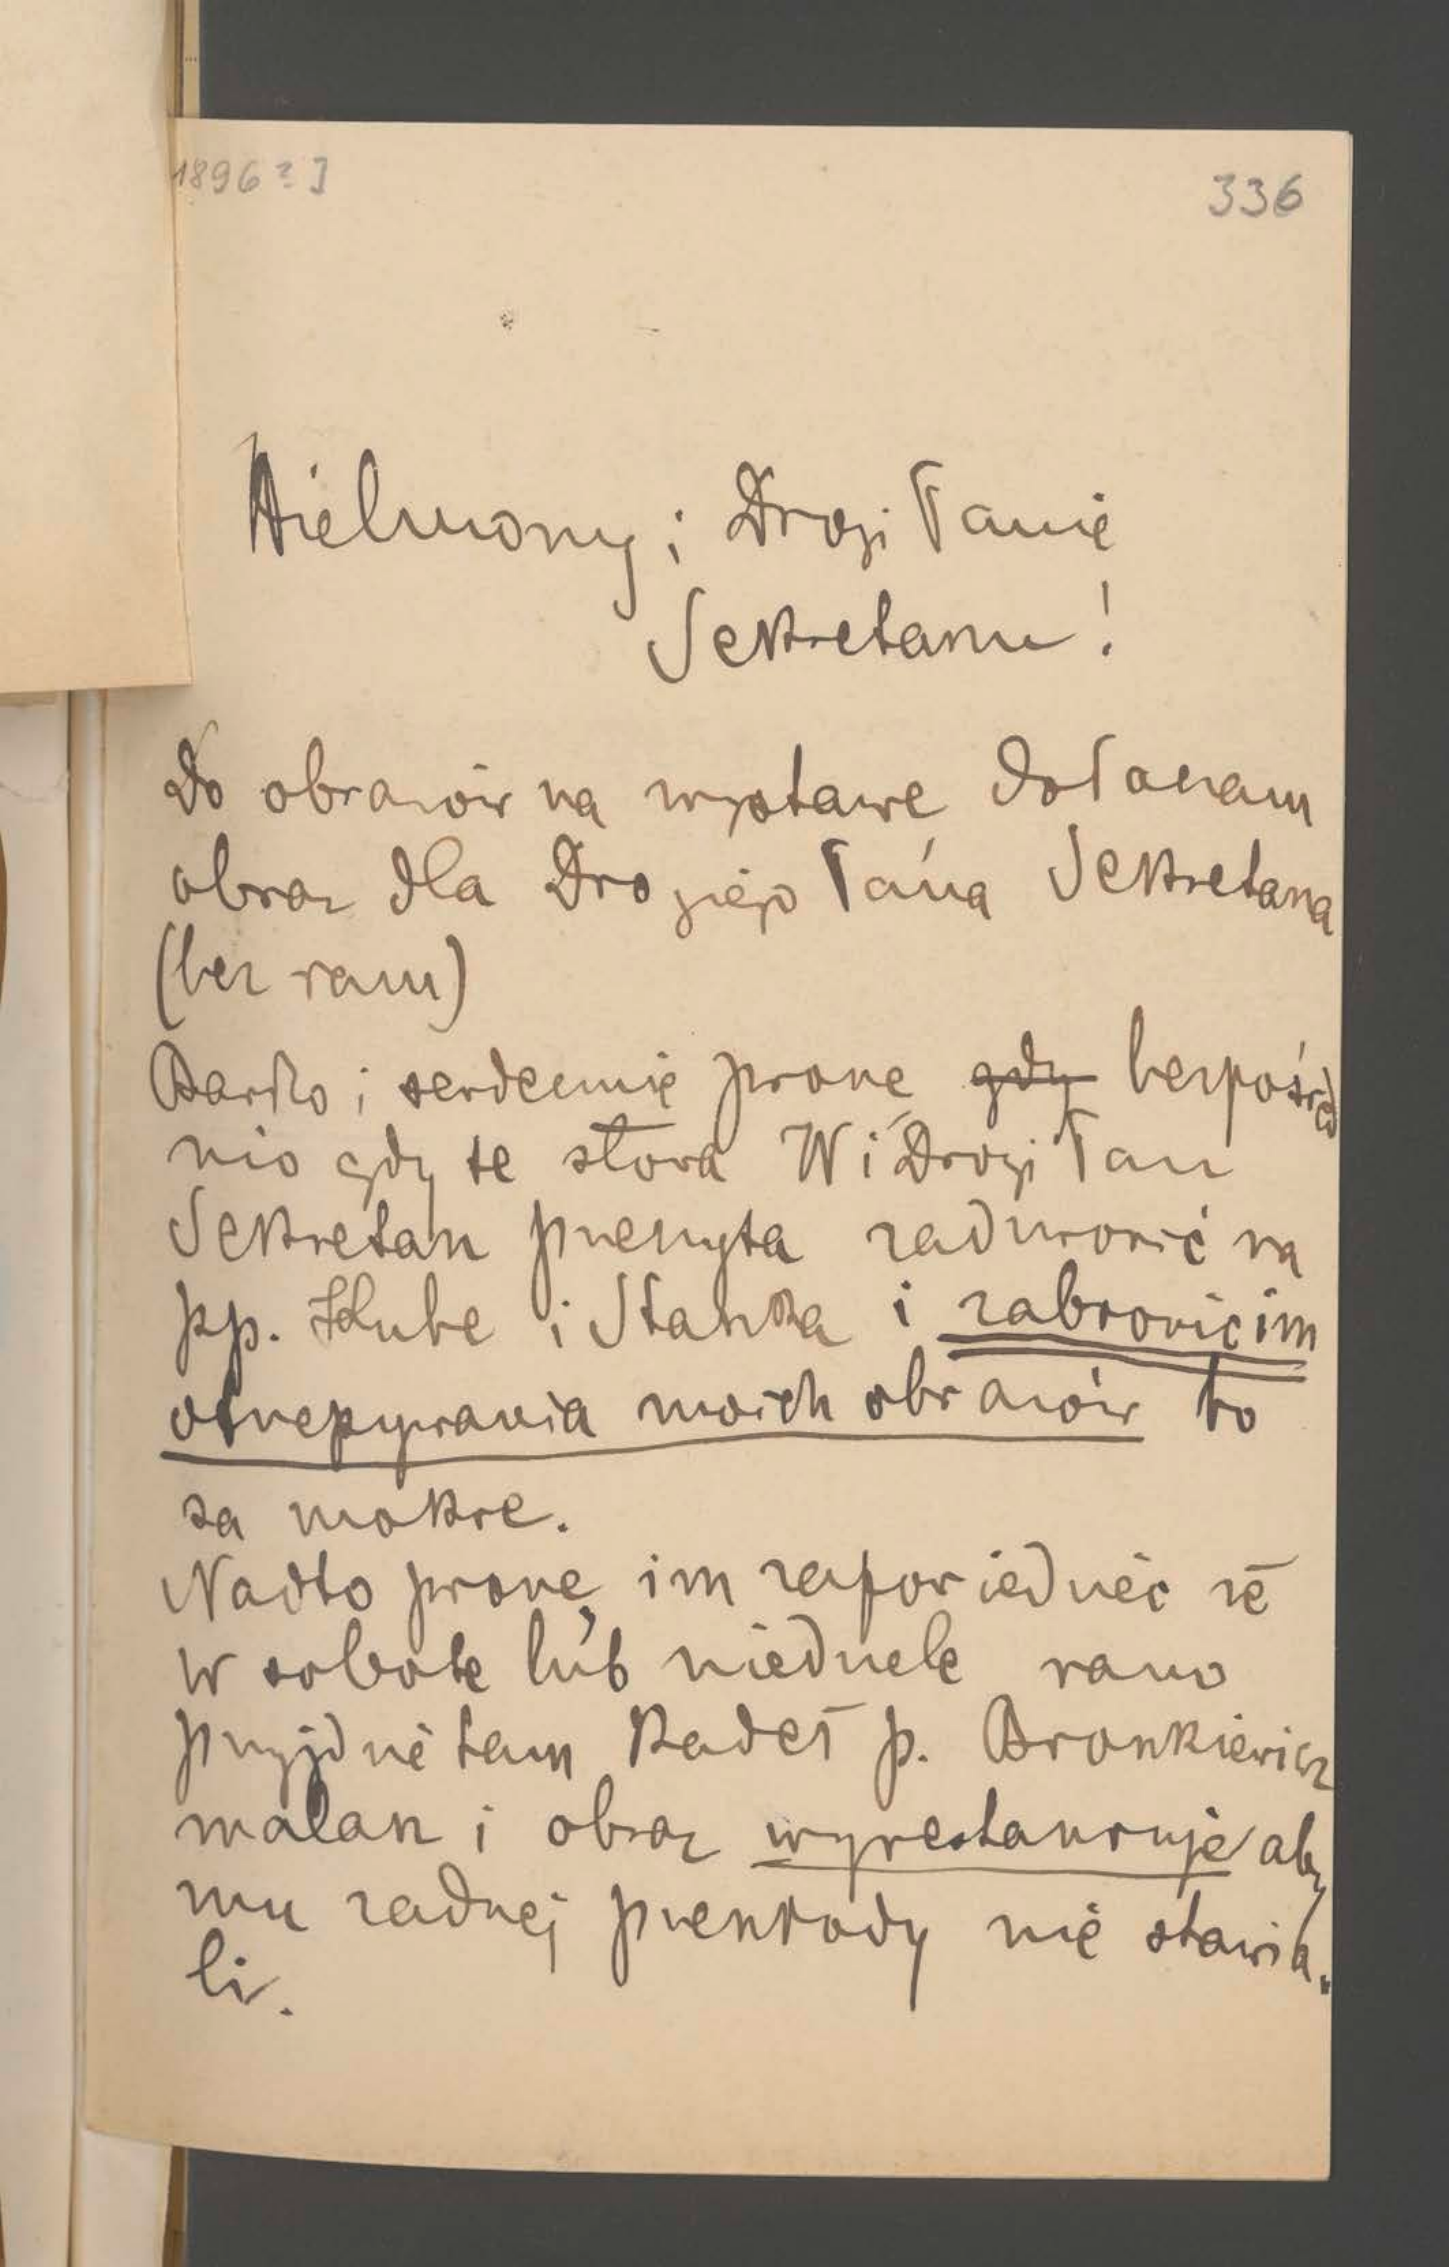 1896?]
336
Wielmożny i Drogi Panie
Sekretarzu!
Do obrazów na wystawę dołączam
obraz dla Drogiego Pana Sekretarza
(bez ram)
Bardzo i serdecznie proszę gdy bezpośred
nio gdy te słowa W i Drogi Pan
Sekretarz przeczyta zadzwonić na
pp. Kube i Stanka i zabronić im
otrzepywania moich obrazów bo
są mokre.
Nadto proszę im zapowiedzieć że
w sobotę lub niedzielę rano
przyjdzie tam kadet p. Bronkiewicz
malarz i obraz wyrestauruje aby
mu żadnej przeszkody nie stawia„
li.